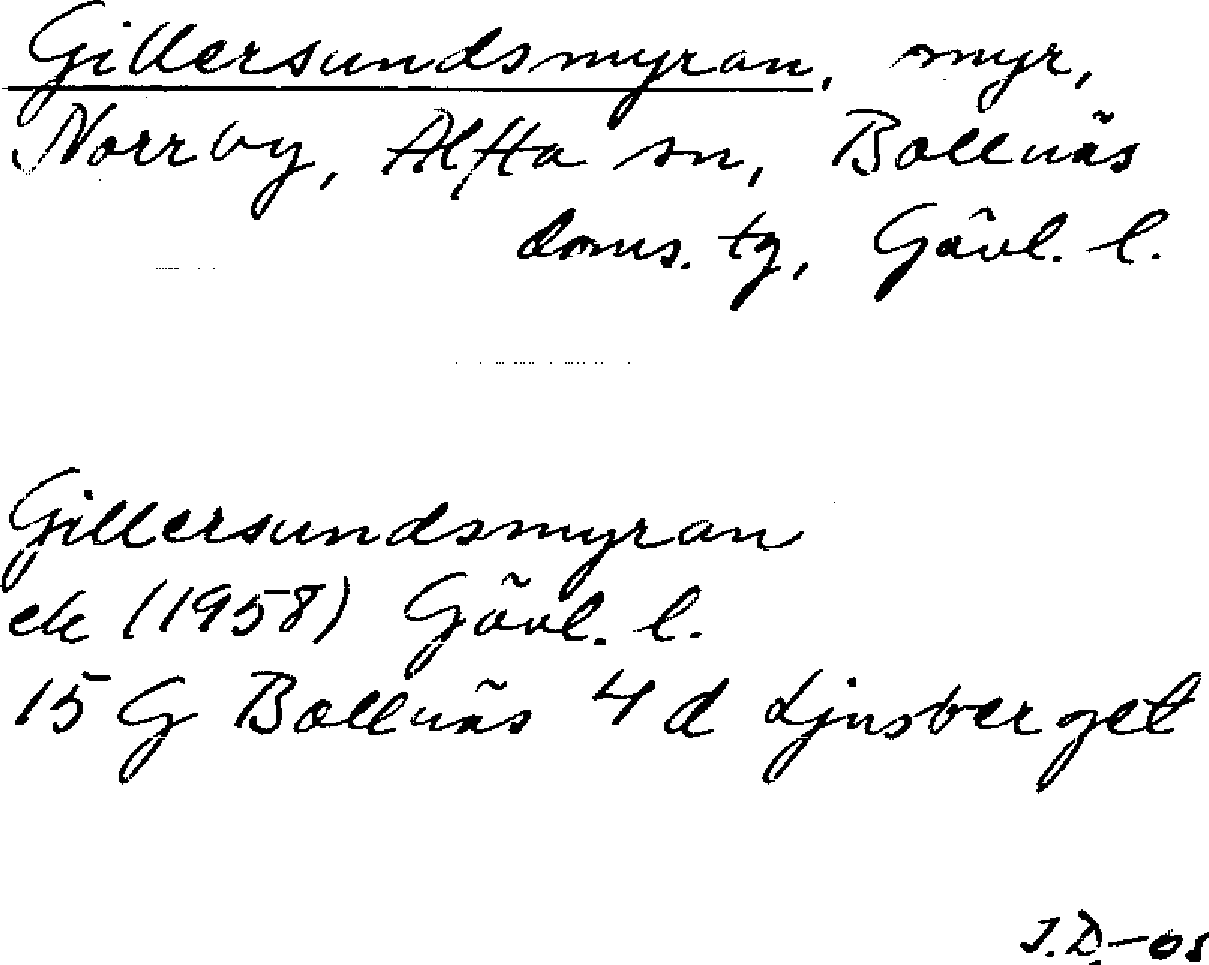 Gillersundsmyran, myr,
Norrby, Alfta sn, Bollnäs
doms. tg, Gävl. l.
Gillersundsmyran
ek (1958) Gävl. l.
15 G Bollnäs 4 d Ljusberget
J.D.-os